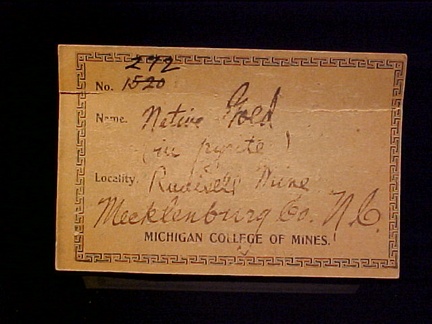 272
No. 1520
Name. Native Gold
(in pyrite)
Locality. Rudisells Mine
Mecklenburg Co. N.C.
MICHIGAN COLLEGE OF MINES.